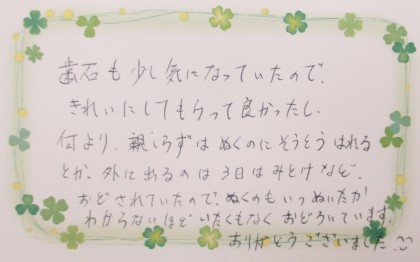 歯石も少し気になっていたので、
きれいにしてもらって良かったし、
何より、親しらずはぬくのにそうとうはれる
とか、外に出るのは3日はみとけなど、
おどされていたので、ぬくのもいつぬいたか
わからないほどいたくもなくおどろいています。
ありがとうございました